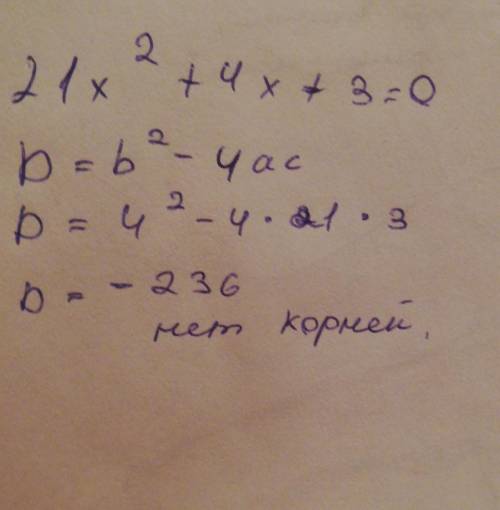 21x² + 4x + 3 = 0
D = b² - 4ac
D = 4² - 4 · 21 · 3
D = - 236
нет корней.